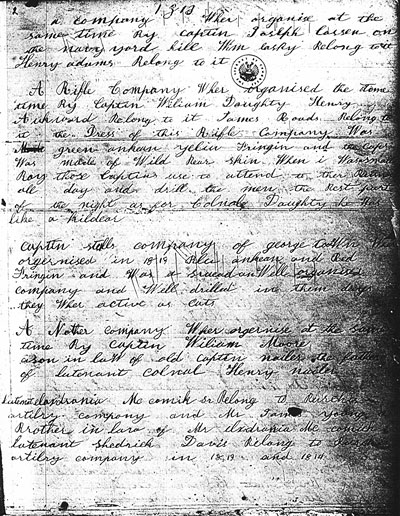 1813
a company Wher organise at the
same time By captin Joseph Carsen on
the navy yord hill Wm easby Belong to it
Henry adams Belong to it
A Rifle Company Wher organised the same
time By Captin Wiliam Doughty Henry
Aukward Belong to it James Roads Belong to
it the Dress of this Rifle Company Was
green anheun yelin Fringin and caps
Was maide of Wild Bear skin When i Was small
Boy those Captins use to attend to ther
all day and drill the men the Rest part
of the night as for Colnole Doughty he Was
like a kildear
Captin stulls company of george town
orgernised in 1819 Blue anhean and Red
Fringin and Was a Well orgernised
company and Well drilled in them days
they Wher active as cats
A Nother company Wher orgernise at the same
time By Captin William Moore
a son in law of old Captin nailer the
of lutenant colnal Henry nailer
Lutenant elexdrania Mc comick sr Belong to
artilry company and Mr James young
Brother in law of Mr elxdrania Mc comick
lutenant Shedrick Davis Belong to
artilry company in 1813 and 1814